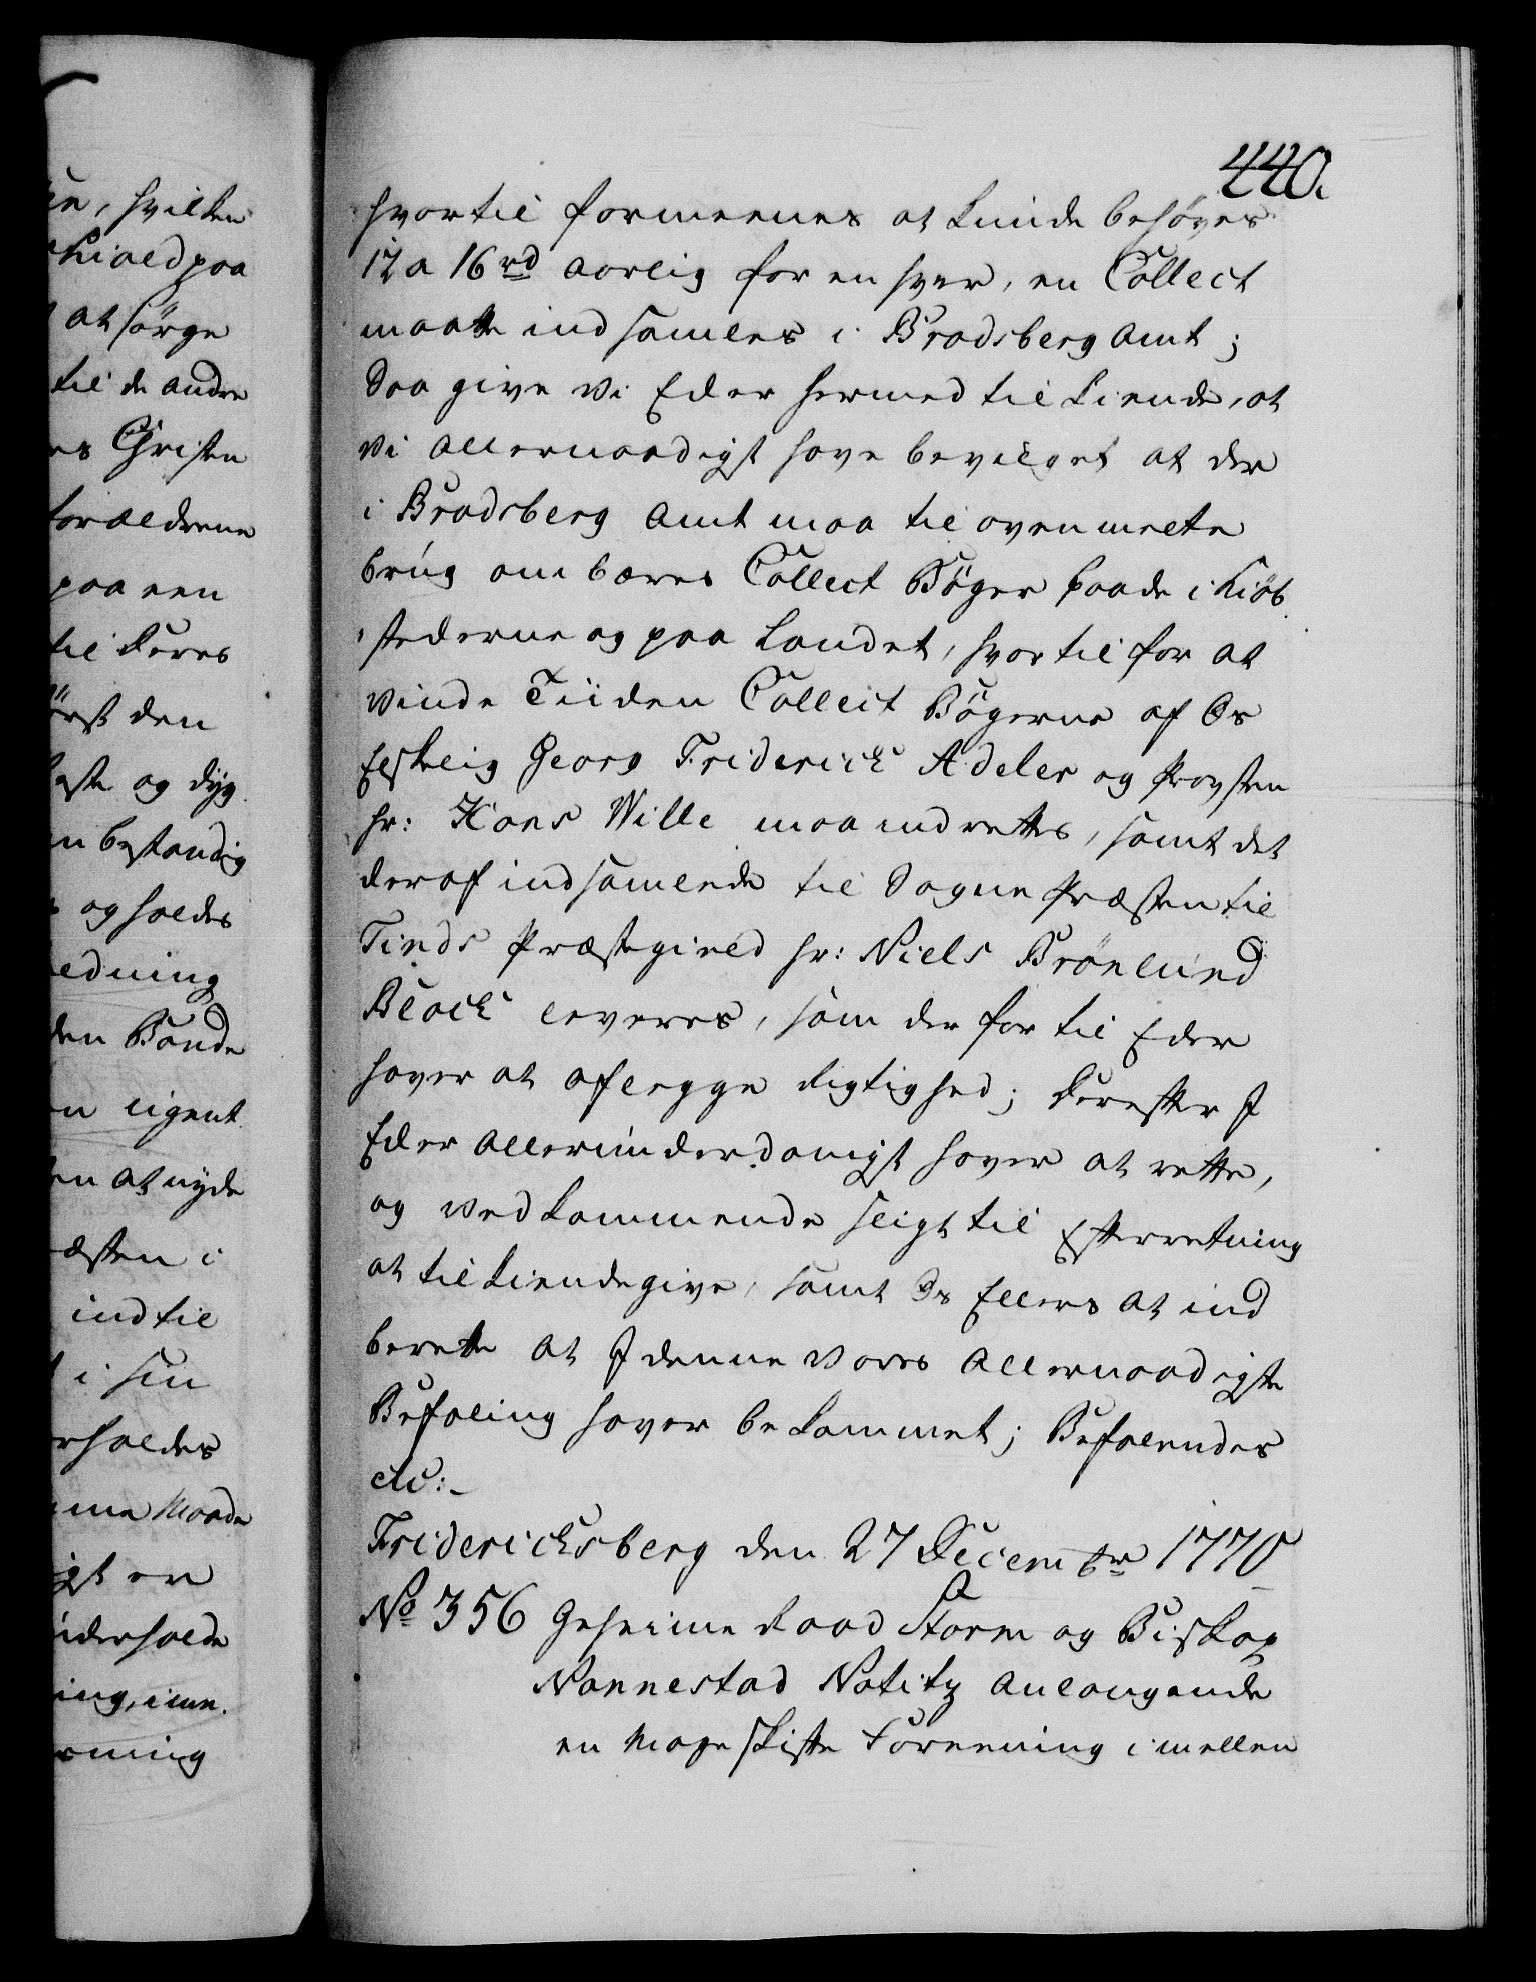 440.
hvortil formeenes at kunde behøves
12 a 16 rd aarlig for en hver, en Collect
maatte indsamles i Bradsberg Amt;
Saa give Vi Eder hermed tilkiende, at
Vi allernaadigst have bevilget at der
i Bradsberg Amt maa til ovenmeelte
brug ombæres Collect Bøger baade i Kiøb
stederne og paa Landet, hvortil for at
vinde Tiiden Collect Bøgerne af Os
Elskelig Georg Friderich Adeler og Provsten
hr: Hans Wille maa indrettes, samt det
deraf indsamlende til Sogne Præsten til
Tinds Præstegield hr: Niels Brønlund
Bloch leveres, som derfor til Eder
haver at aflegge Rigtighed; Derefter I
Eder allerunderdanigst haver at rette,
og vedkommende sligt til Efterretning
at tilkiendegive, samt Os Ellers at ind
berette at I denne Vores allernaadigste
Befaling haver bekommet; Befalendes
etc:
Friderichsberg den 27 Decembr 1770
No 356 Geheime Raad Storm og Biskop
Nannestad Notitz anlangende
en Mageskifte Forening imellen
en, hvilken
skiold paa
at sørge
til de andre
es Christen
forældrene
paa een
til deres
først den
este og dyg
en bestandig
og holdes
ledning
den Bonde
en ligent
en at nyde
æsten i
indtil
i sin
erholdes
me Maade
igt er
underholde
ing, imn.